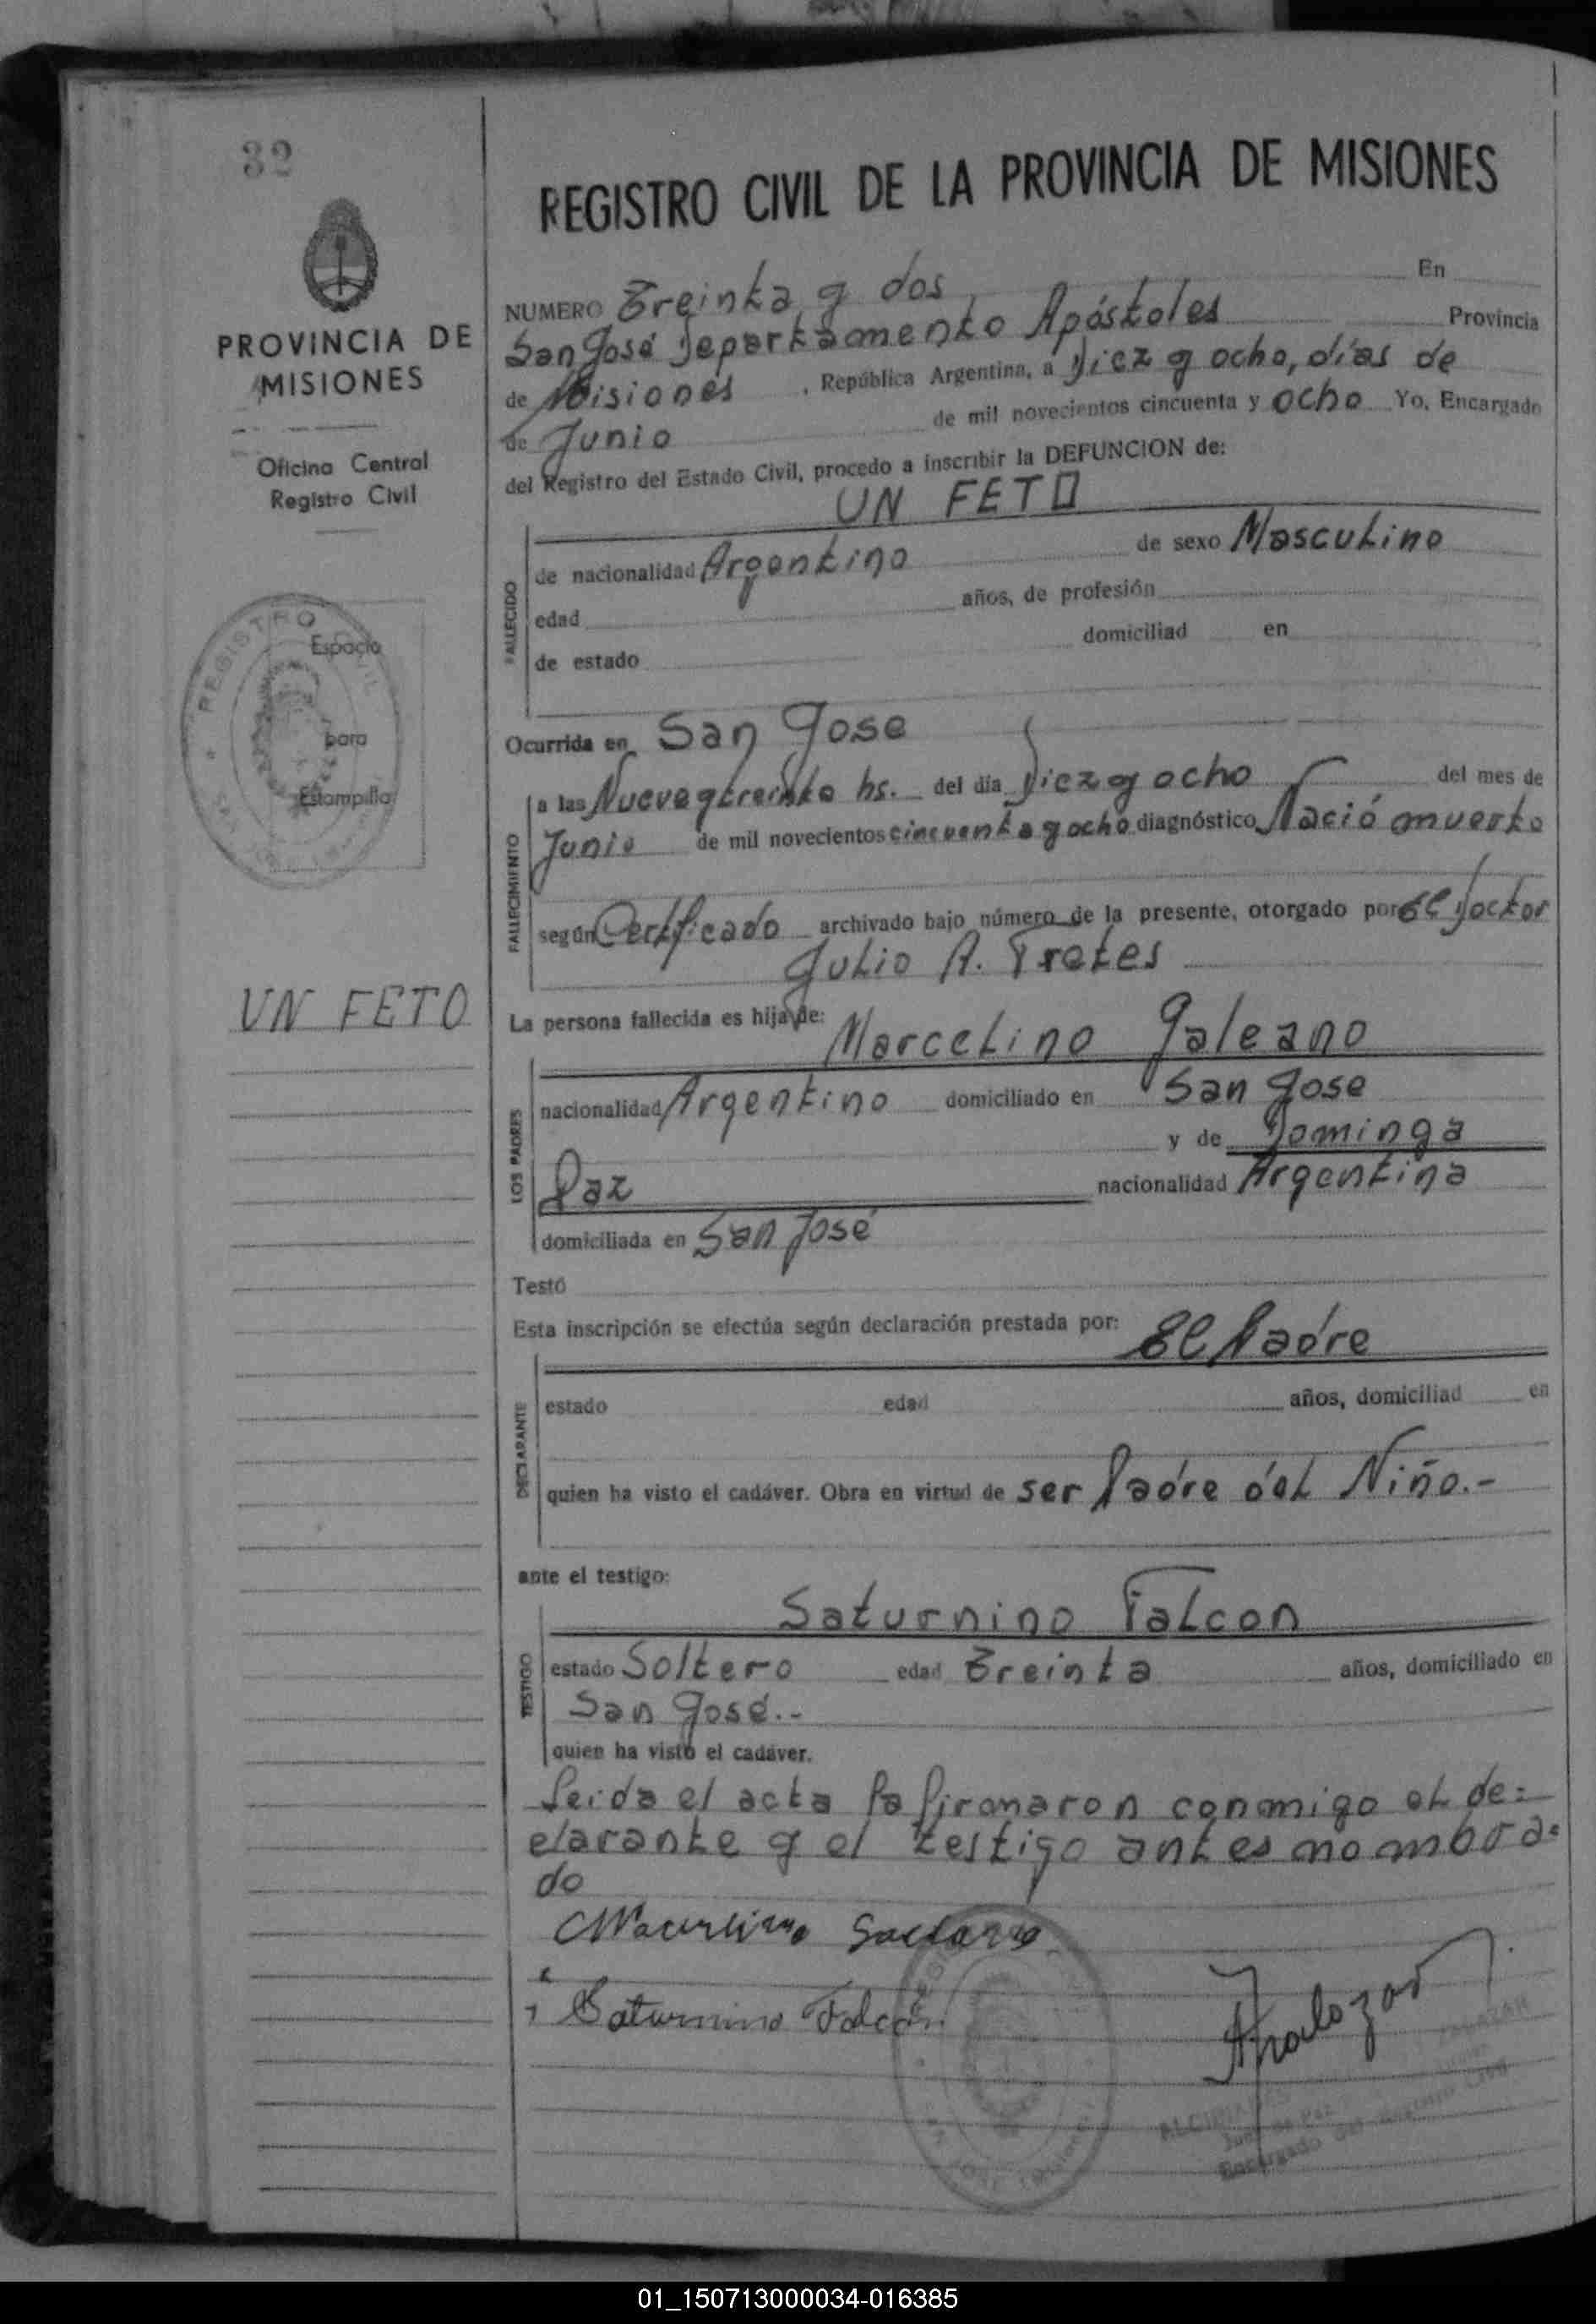 32
PROVINCIA DE
MISIONES
Oficina Central
Registro Civil
REGISTRO CIVIL
Espacio
para
Estampilla
UN FETO
REGISTRO CIVIL DE LA PROVINCIA DE MISIONES
NUMERO Treinta y dos En
San José Departamento Apóstoles Provincia
de Misiones , República Argentina, a Diez y ocho, días de
de Junio de mil novecientos cincuenta y ocho Yo, Encargado
del Registro del Estado Civil, procedo a inscribir la DEFUNCION de:
UN FETO
FALLECIDO
de nacionalidad Argentino de sexo Masculino
edad años, de profesión
de estado domiciliad en
Ocurrida en San Jose
FALLECIMIENTO
a las Nueve y treinta hs. del día Diez y ocho del mes de
Junio de mil novecientos cincuenta y ocho diagnóstico Nació muerto
según Certificado archivado bajo número de la presente, otorgado por el Doctor
Julio A.
La persona fallecida es hija de:
Marcelino Galeano
LOS PADRES
nacionalidad Argentino domiciliado en San Jose
y de Dominga
Paz nacionalidad Argentina
domiciliada en San José
Testó
Esta inscripción se efectúa según declaración prestada por: El Padre
DECLARANTE
estado edad años, domiciliad en
quien ha visto el cadáver. Obra en virtud de ser Padre del Niño.-
ante el testigo:
Saturnino Falcon
TESTIGO
estado Soltero edad Treinta años, domiciliado en
San José.-
quien ha visto el cadáver.
Leida el acta la firmaron conmigo el de=
clarante y el testigo antes nombra=
do
Marcelino Galeano
Saturnino Falcón
Juez de Paz
Encargado del Registro Civil
01_150713000034-016385